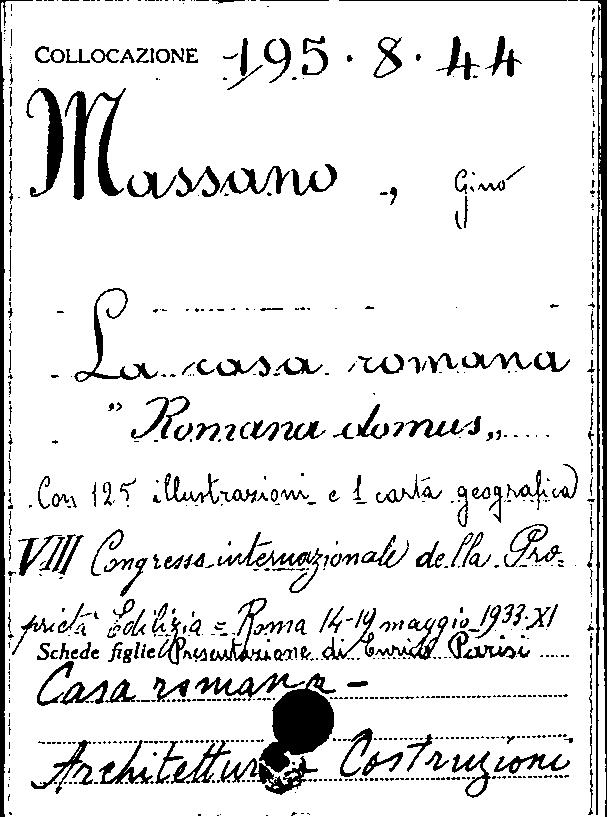 COLLOCAZIONE 195.8.44
Massano, Gino
La casa romana
"Romana domus„
Con 125 illustrazioni e 1 carta geografica
VIII Congresso internazionale della Pro-
prietà Edilizia = Roma 14-19 maggio 1933-XI
Schede figlie Presentazione di Enrico Parisi
Casa romana -
Architettura Costruzioni